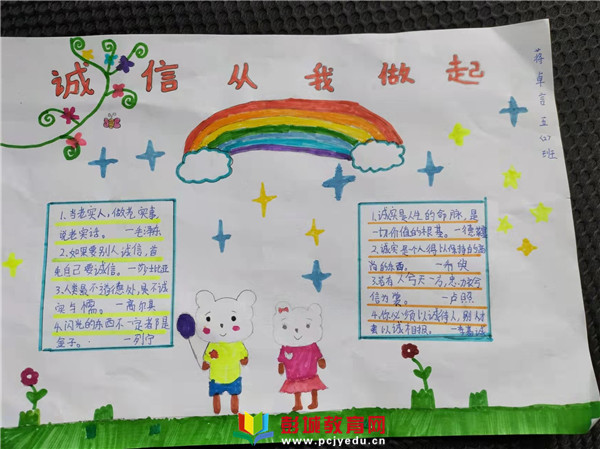 诚信从我做起
蒋卓言 五(4)班
1.当老实人,做老实事,
说老实话。 —毛泽东
2.如果要别人诚信,首
先自己要诚信。—莎士比亚
3.人类最不道德处,是不诚
实与懦。—高尔基
4.闪光的东西不一定都是
金子。 —列宁
1.诚实是人生的命脉,是
一切价值的根基。—德莱塞
2.诚实是个人得以保持的高
尚的东西。 —乔叟
信为宝。—卢照
4.你必须以诚待人,别人才
会以诚相报。—李嘉诚
彭城教育网
www.pcjyedu.cn